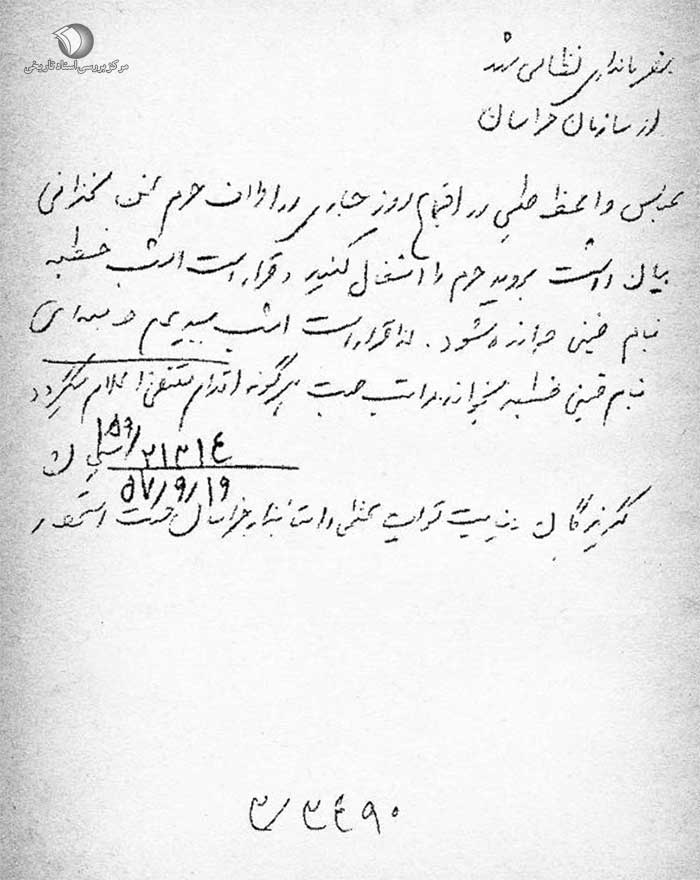 مرکز بررسی اسناد تاریخی
بفرمانداری نظامی مشهد
از سازمان خراسان
عباس واعظ طبسی در اجتماع روز جاری در اطراف حرم ضمن سخنرانی
بیان داشت بروید حرم را اشغال کنید و قرار است امشب خطبه
بنام خمینی خوانده شود. لذا قرار است امشب
بنام خمینی خطبه بخوانند مراتب جهت هرگونه اقدام مقتضی اعلام میگردد
۲۱۳۱۴/
۵۷/۹/۱۹
گیرندگان استانداری خراسان جهت استحضار
۳/۳۴۹۰